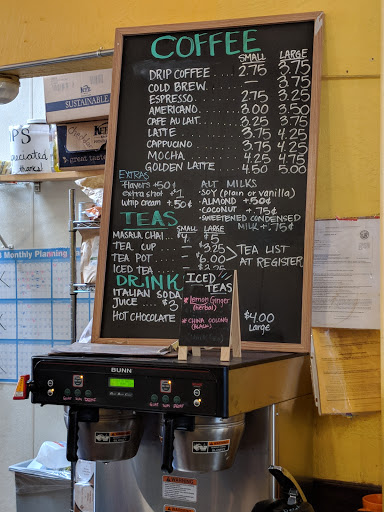 COFFEE
SMALL LARGE
DRIP COFFEE.... 2.75 3.75
COLD BREW...... 3.75
ESPRESSO....... 2.75 3.25
AMERICANO...... 3.00 3.50
CAFE AU LAIT... 3.25 3.75
LATTE.......... 3.75 4.25
CAPPUCINO...... 3.75 4.25
MOCHA.......... 4.25 4.75
GOLDEN LATTE... 4.50 5.00
EXTRAS
Flavors +50¢
extra shot +$1
whip cream +.50¢
ALT MILKS
·SOY (plain or vanilla)
·ALMOND +50¢
·COCONUT +.75¢
·SWEETENED CONDENSED
MILK +.75¢
TEAS
SMALL LARGE
MASALA CHAI... $5
TEA CUP $3.25
TEA POT $6.00
ICED TEA
TEA LIST
AT REGISTER
DRINK
ITALIAN SODA
JUICE... $3
HOT CHOCOLATE
ICED
TEAS
Lemon Ginger
(herbal)
CHINA OOLONG
(BLACK)
$4.00
Large
BUNN
SUSTAINABLE
great taste
Monthly Planning
WARNING